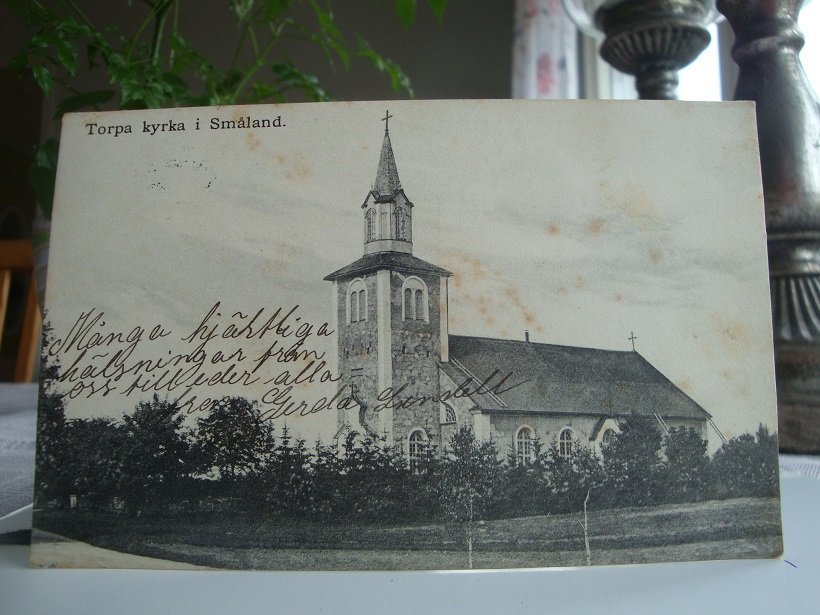 Torpa kyrka i Småland.
Många hjärtliga
hälsningar från
oss till eder alla =
från Gerda Lundell